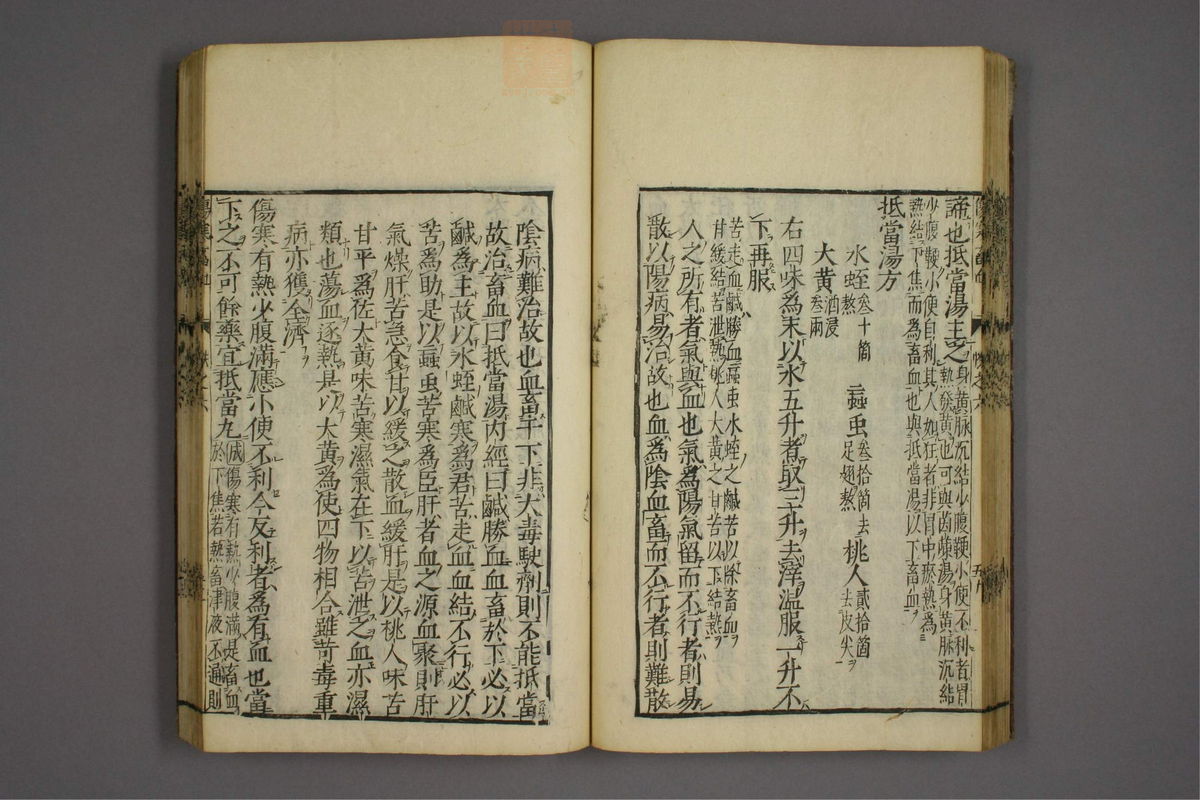 諦也抵當湯主之身黃脉沉結少腹鞕小便不利者胃
熱發黃也可與茵蔯湯身黃脉沉結
少腹鞕小便自利其人如狂者非胃中瘀熱爲
熱結下焦而爲畜血也與抵當湯以下畜血
抵當湯方
水蛭叁十箇熬 䗪虫叁拾箇去足翅熬 桃人貳拾箇去皮尖
大黃叁兩酒浸
右四味爲末以水五升煮取三升去滓溫服一升不
下再服
苦走血鹹勝血䗪虫水蛭之鹹苦以除畜血
甘緩結苦泄熱桃人大黃之甘苦以下結熱
人之所有者氣與血也氣爲陽氣留而不行者則易
散以陽病易治故也血爲陰血畜而不行者則難散
陰病難治故也血畜于下非大毒駛劑則不能抵當
故治畜血曰抵當湯内經曰鹹勝血血畜於下必以
鹹爲主故以水蛭鹹寒爲君苦走血血結不行必以
苦爲助是以䗪虫苦寒爲臣肝者血之源血聚則肝
氣燥肝苦急食甘以緩之散血緩肝是以桃人味苦
甘平爲佐大黃味苦寒濕氣在下以苦泄之血亦濕
類也蕩血逐熱是以大黃爲使四物相合雖苛毒重
病亦獲全濟
傷寒有熱少腹滿應小便不利今反利者爲有血也當
下之不可餘藥宜抵當丸
傷寒有熱少腹滿是畜血
於下焦若熱畜津液不通則